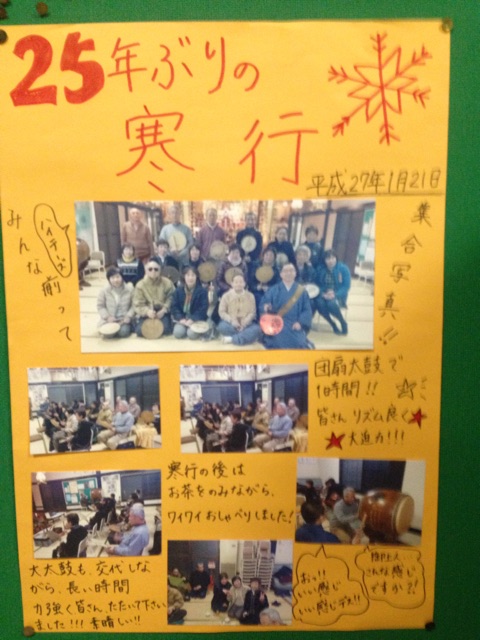 25年ぶりの
寒行
平成27年1月21日
みんな揃って
ハイチーズ
集合写真!!
団扇太鼓で
1時間!!
皆さんリズム良く
大迫力!!!
寒行の後は
お茶をのみながら、
ワイワイおしゃべりしました!
大太鼓も、交代しな
がら、長い時間
力強く皆さん、たたいて下さい
ました!!! 素晴しい!!
おっ!!
いい感じ
いい感じデス!!
こんな感じ
ですか?!